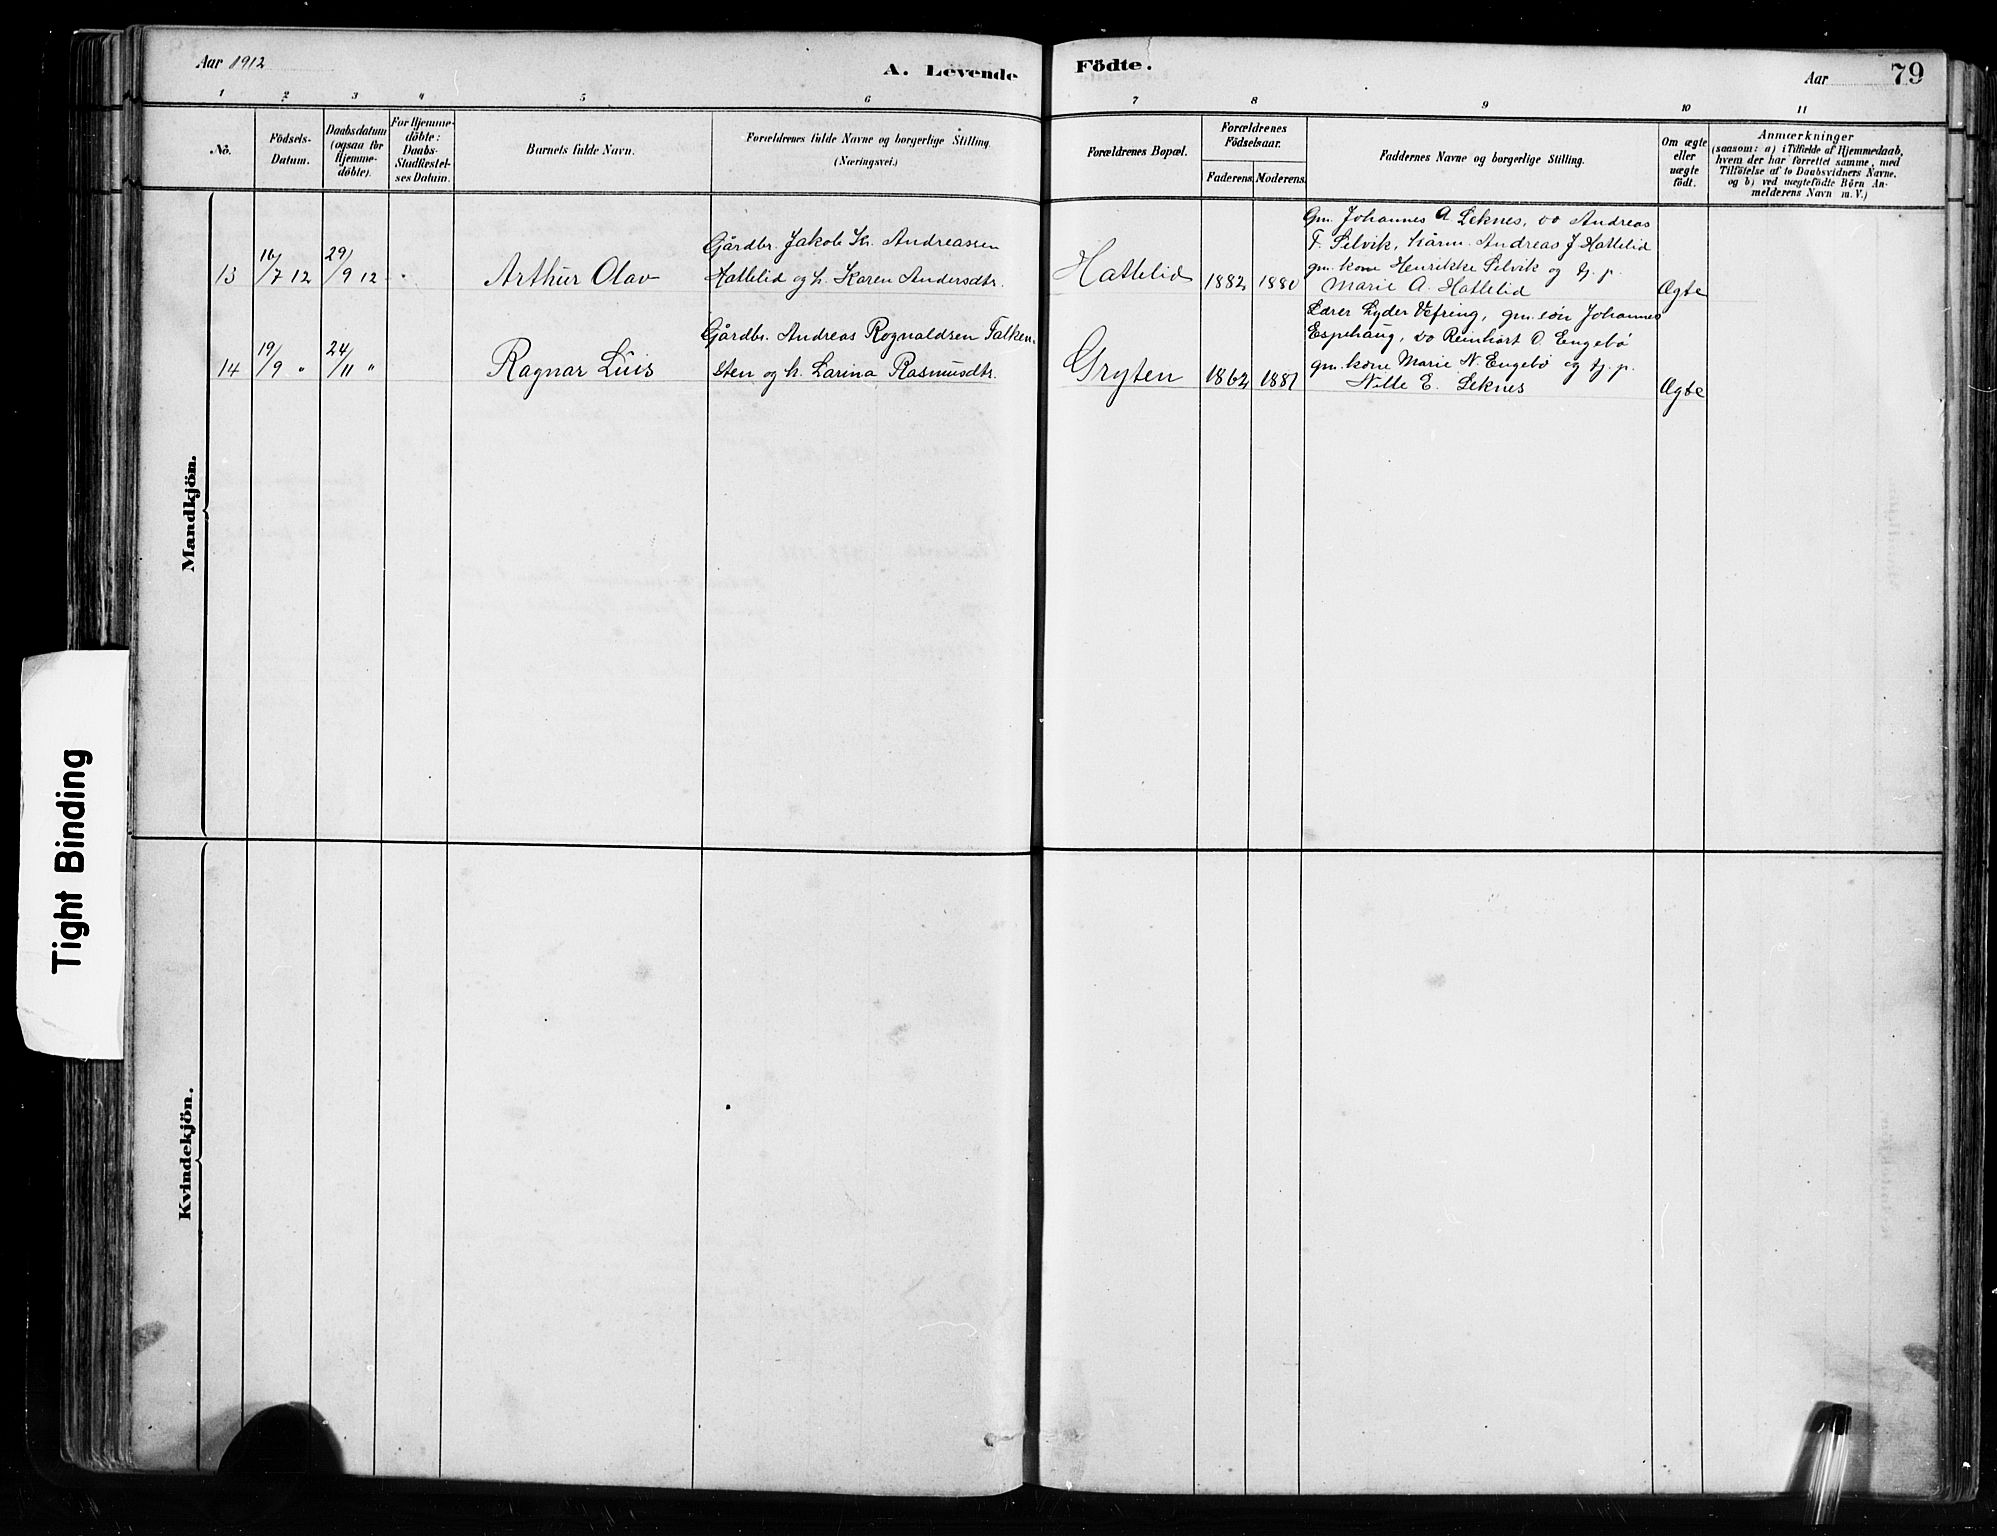 Aar 1912
A. Levende Födte.
Aar
79
1 2 3 4 5 6 7 8 9 10 11
No.
Födsels-
Datum.
Daabsdatum
(ogsaa for
Hjemme-
döbte).
For Hjemme-
döbte:
Daabs-
Stadfæstel-
ses Datum.
Barnets fulde Navn.
Forældrenes fulde Navne og borgerlige Stilling.
(Næringsvei.)
Forældrenes Bopæl.
Forældrenes
Födselsaar.
Faderens. Moderens.
Faddernes Navne og borgerlige Stilling.
Om ægte
eller
uægte
födt.
Anmærkninger
(saasom: a) i Tilfælde af Hjemmedaab,
hvem der har forrettet samme, med
Tilföielse af to Daabsvidners Navne,
og b) ved uægtefödte Börn An-
melderens Navn m. V.)
Mandkjön.
13
16/7 12
29/9 12
Arthur Olav
Gårdbr. Jakob Kr. Andreassen
Hattelid og h. Karen Andersdtr.
Hattelid
1882
1880
Gm. Johannes A. Leknes, do Andreas
T. Selvik, kårm. Andreas J Hattelid
gm. kone Henrikke Selvik og tj. p.
Marie A. Hattelid
Ægte
14
19/9 "
24/11 "
Ragnar Luis
Gårdbr. Andreas Rognaldsen Falken-
sten og h. Larina Rasmusdtr.
Gryten
1862
1881
Lærer Lyder Vefring, gm. søn Johannes
Espehaug, do Reinhart O. Engebø
gm. kone Marie N. Engebø og tj. p.
Nille E. Leknes
Ægte
Kvindekjön.
Tight Binding